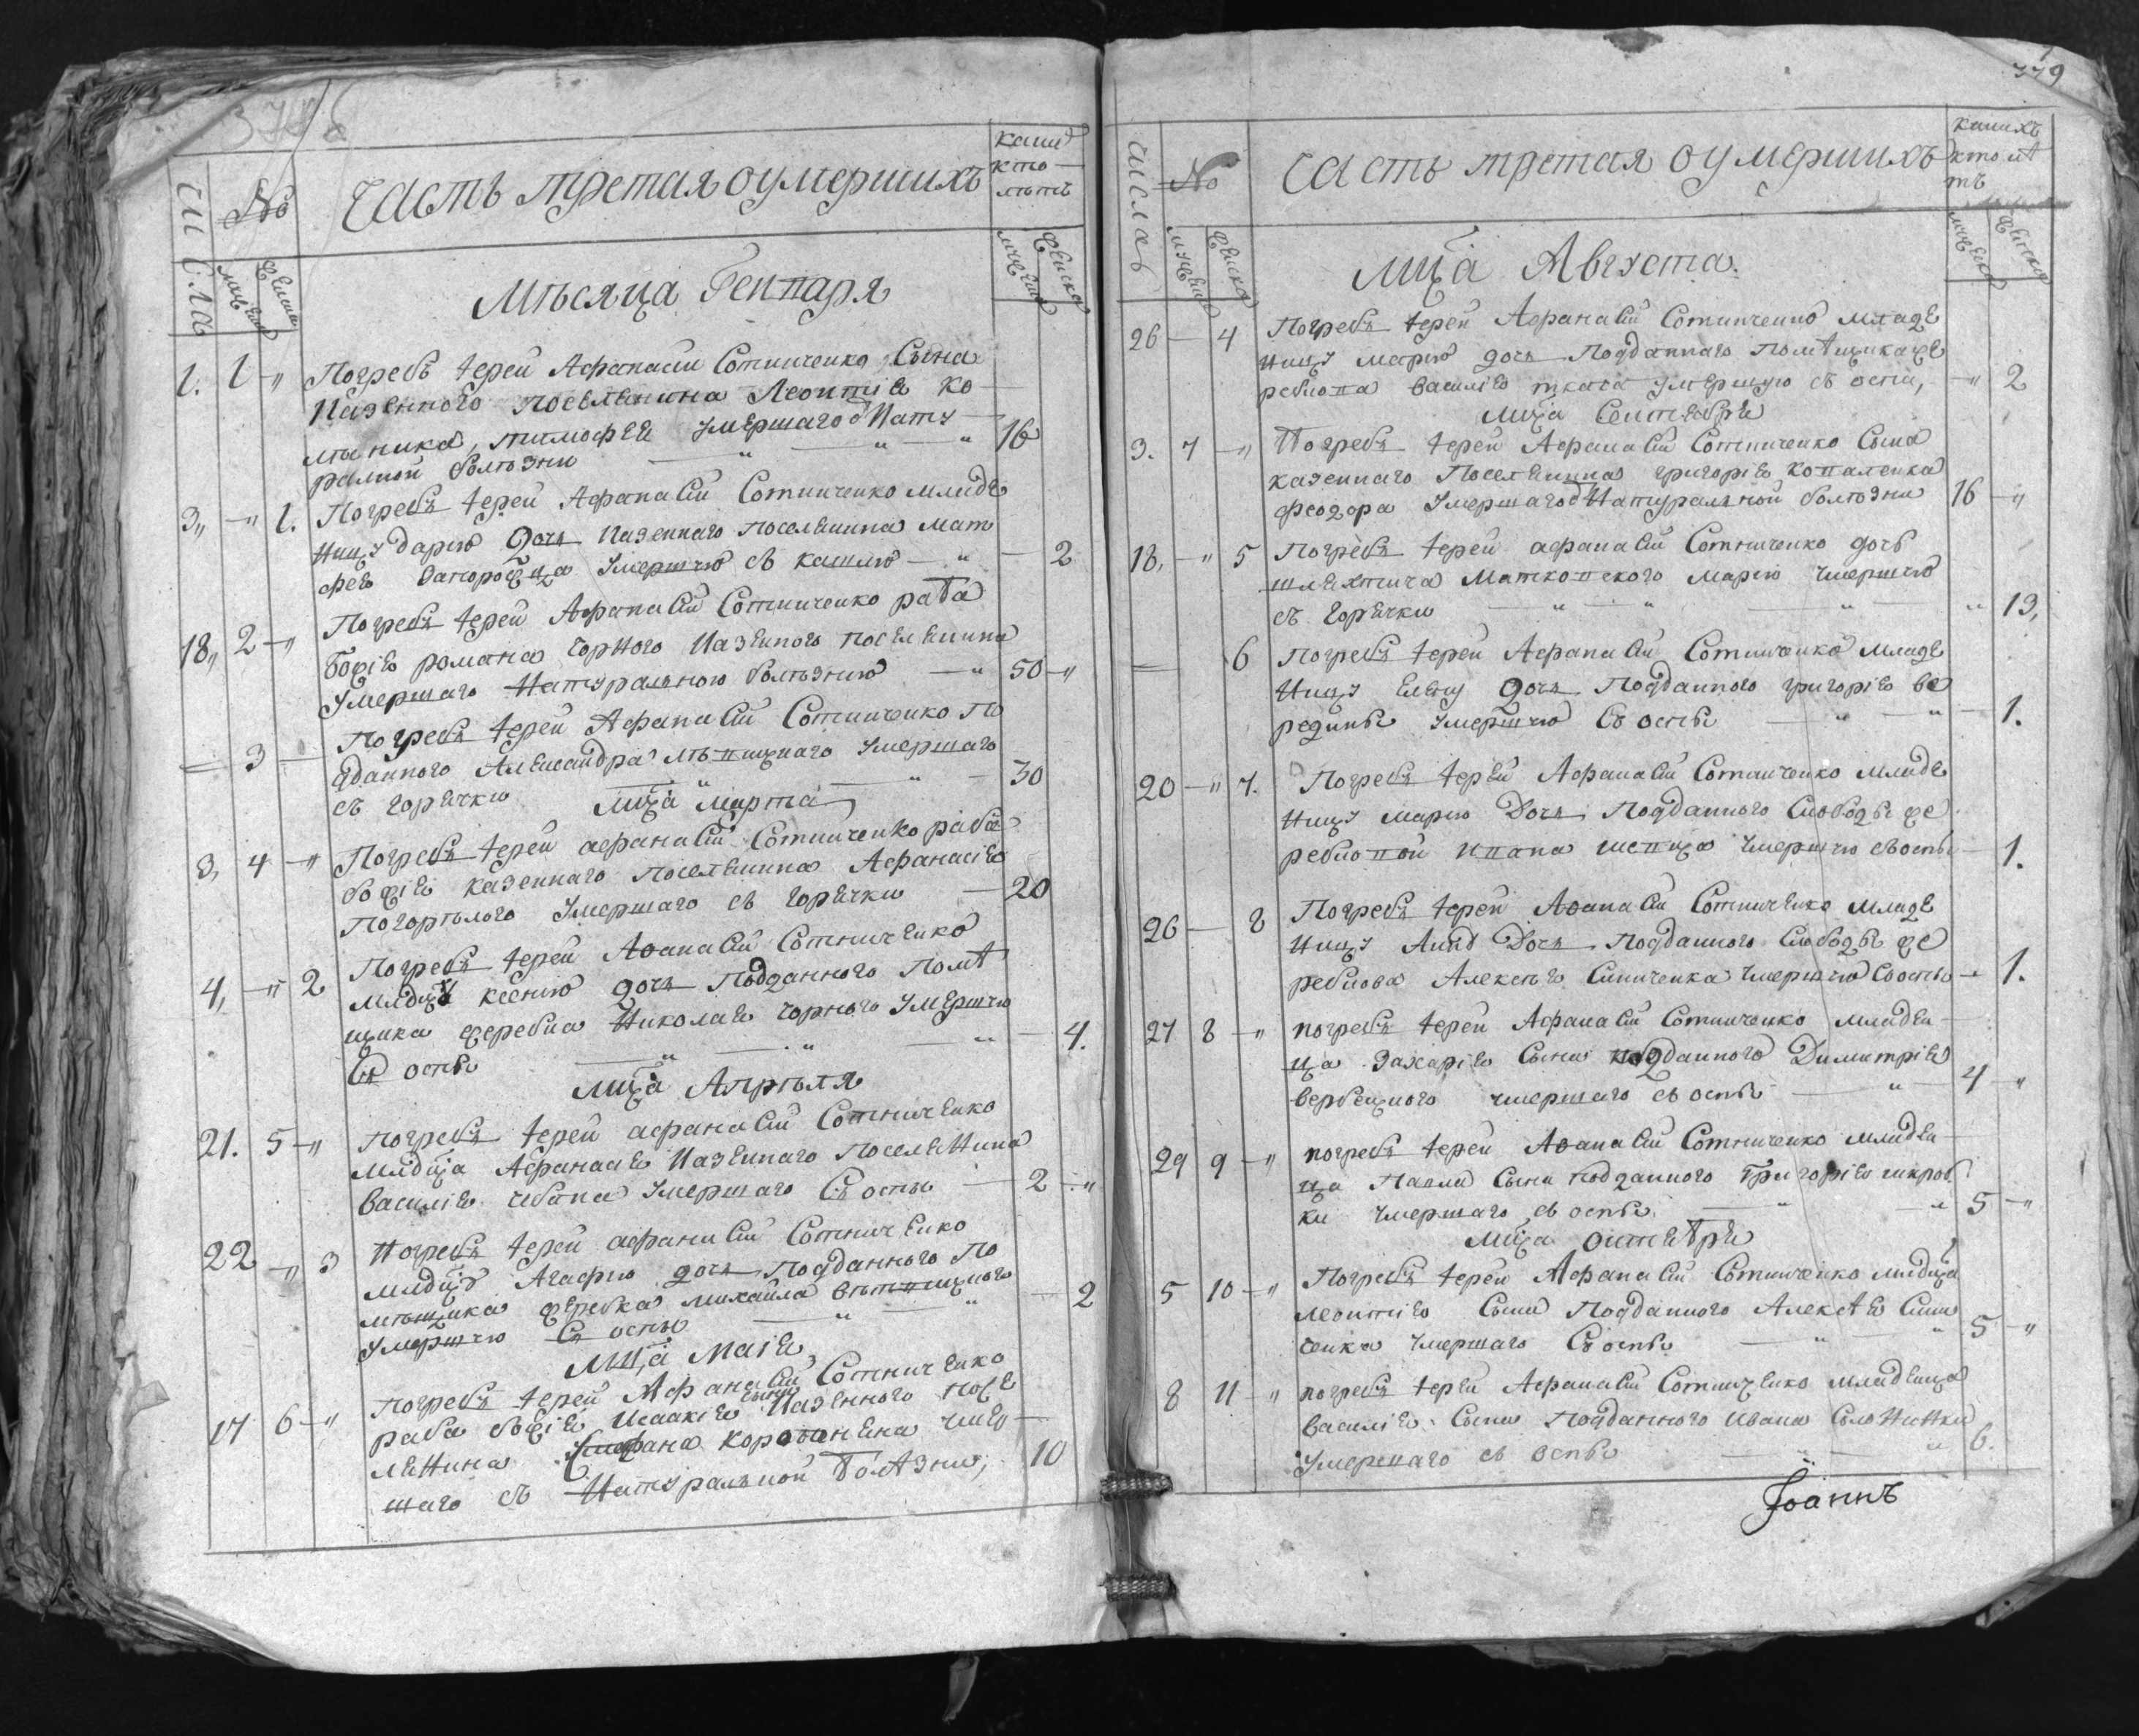 Числа
№
Часть третая о умершихъ
кто
лѣтъ
Мѣсяца Генваря
1. 1 -„ Погребъ Іерей Афанасий Сотниченко Сына
казенного поселянина Леонтія Ко-
умершаго Нату-
ралной болѣзни -„ -„ 16
3„ -„ 1. Погребъ Іерей Афанасий Сотниченко младе
ницу дарию дочь казеннаго поселянина Мат
фея умершую съ кашлю -„ - 2
18„ 2 -„ Погребъ Іерей Афанасий Сотниченко раба
Божія романа Чорного казенного поселянина
Умершаго Натуральною болѣзнию -„ 50 -„
— 3 — Погребъ Іерей Афанасий Сотниченко По
дданного Александра умершаго
съ горячки -„ -„ - 30
Мца Марта
3, 4 -„ Погребъ Іерей афанасий Сотниченко раба
божія казеннаго поселянина Афанасія
Погорѣлого Умершаго съ горячки - 20
4, -„ 2 Погребъ Іерей Аѳанасий Сотниченко
млдцу ксению дочь Подданного Помѣ
щика Николая Чорного Умершую
Съ оспы -„ -„ -„ - 4.
Мца Апрѣля
21. 5 -„ Погребъ Іерей афанасий Сотниченко
млдца Афанасія казенного Поселянина
Василія Чабана Умершаго Съ оспы - 2 -„
22 -„ 3 Погребъ Іерей афанасий Сотниченко
млдцу Агафию дочь Подданного По
мѣщика Михайла
Умершую Съ оспы -„ -„ - 2
Мца Маія
17 6 -„ Погребъ Іерей Афанасий Сотниченко
сына
раба божія Исаакія казенного Посе
лянина умер-
шаго съ Натуральной Болѣзни, 10

379
Числа
№
Часть третая о умершихъ
какихъ
кто лѣ
тъ
Мца Августа.
26 — 4 Погребъ Іерей Афанасий Сотниченко младе
ницу марию дочь Подданнаго Помѣщика Ще
рбиова василія ткача умершую съ оспи, -„ 2
Мца Септября
3. 7 -„ Погребъ Іерей Афанасий Сотниченко Сына
казенного Поселянина григорія коваленка
феодора Умершаго Натуральной болѣзни 16 -„
18, -„ 5 Погребъ Іерей афанасий Сотниченко дочь
шляхтича Матковского Марию умершую
съ Горячки -„ -„ -„ „ 13,
— 6 Погребъ Іерей Афанасий Сотниченко Младе
ницу Елену дочь Подданного григорія Ве
редины умершую Съ оспы -„ -„ - 1.
20 -„ 7. Погребъ Іерей Афанасий Сотниченко младе
ницу марию Дочь Подданного Слободы ще
умершую съ оспы - 1.
26 — 8 Погребъ Іерей Аѳанасий Сотниченко младе
ницу Анну Дочь Подданного Слободы ще
Алексѣя Синиченка умершую Съ оспы - 1.
27 8 -„ погребъ Іерей Афанасий Сотниченко младен-
ца Захарія Сына подданного Димитрія
Вербецкого умершаго съ оспы -„ - 4 -„
29 9 -„ погребъ Іерей Аѳанасий Сотниченко младен-
ца Павла Сына подданного Григорія шкроб
ки умершаго съ оспы -„ -„ 5 -„
Мца октября
5 10 -„ Погребъ Іерей Афанасий Сотниченко млдца
Леонтія Сына Подданного Алексѣя Сини
ченка умершаго Съ оспы -„ „ 5 -„
8 11 -„ погребъ Іерей Афанасий Сотниченко младенца
Василія Сына Подданного Ивана
Умершаго съ оспы -„ -„ 6.
Іоаннъ